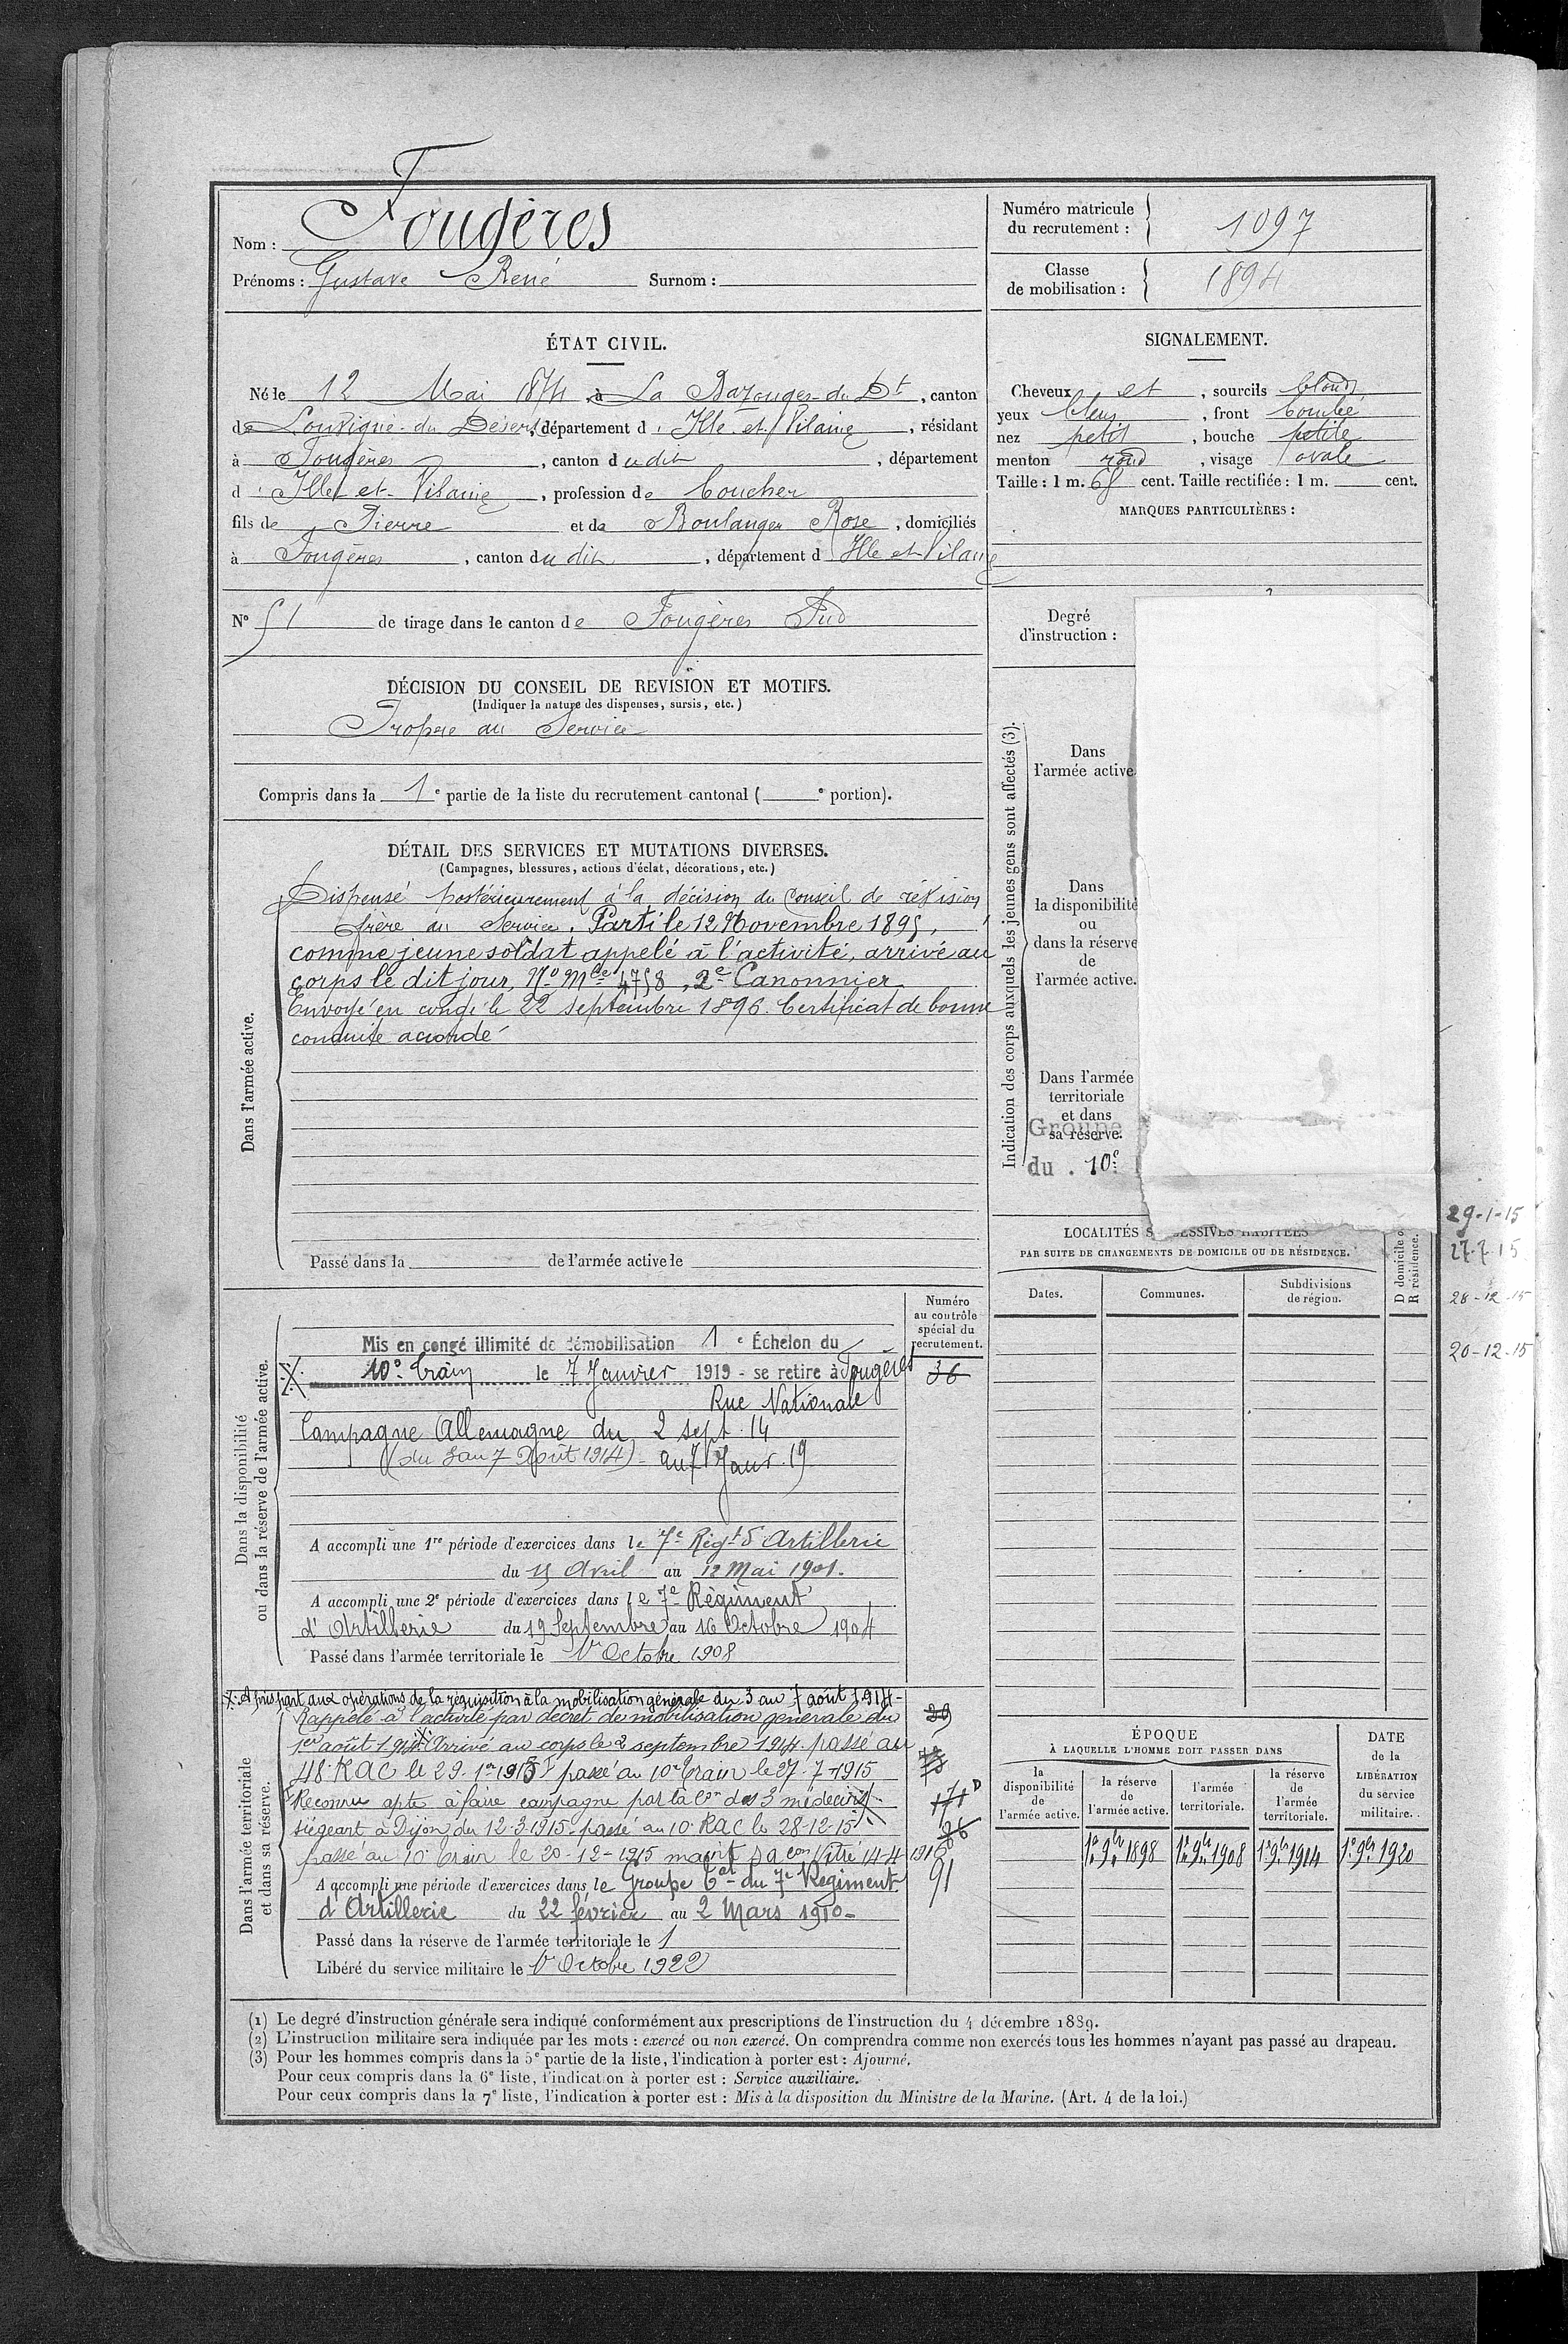 Nom : Fougères
Prénoms : Gustave René Surnom :
Numéro matricule du recrutement : 1097
Classe de mobilisation : 1894
ÉTAT CIVIL.
Né le 12 Mai 1874 à La Bazouges-du-Dt, canton
de Louvigné-du-Désert, département d'Ille-et-Vilaine, résidant
à Fougères, canton dudit, département
d'Ille-et-Vilaine, profession de boucher
fils de Pierre et de Boulanger Rose, domiciliés
à Fougères, canton dudit, département d Ille et Vilaine
No 51 de tirage dans le canton de Fougères Sud
DÉCISION DU CONSEIL DE REVISION ET MOTIFS.
(Indiquer la nature des dispenses, sursis, etc.)
Propre au Service
Compris dans la 1e partie de la liste du recrutement cantonal (e portion).
SIGNALEMENT.
Cheveux et, sourcils blonds
yeux bleus, front bombé
nez petit, bouche petite
menton rond, visage ovale
Taille : 1 m. 68 cent. Taille rectifiée : 1 m. cent.
MARQUES PARTICULIÈRES :
Degré
d'instruction :
Indication des corps auxquels les jeunes gens sont affectés (3).
Dans
l'armée active
Dans
la disponibilité
ou
dans la réserve
de
l'armée active.
Dans l'armée
territoriale
et dans
sa réserve.
Groupe
du . 10e
DÉTAIL DES SERVICES ET MUTATIONS DIVERSES.
(Campagnes, blessures, actions d'éclat, décorations, etc.)
Dans l'armée active.
Dispensé postérieurement à la décision du Conseil de révision
frère au Service. Parti le 12 Novembre 1895,
comme jeune soldat appelé à l'activité, arrivé au
corps le dit jour, No Mle 4758, 2e Canonnier
Envoyé en congé le 22 septembre 1896. Certificat de bonne
conduite accordé
Passé dans la de l'armée active le
Numéro
au contrôle
spécial du
recrutement.
Dans la disponibilité
ou dans la réserve de l'armée active.
Mis en congé illimité de démobilisation 1e Échelon du
X 10e Train le 7 Janvier 1919 - se retire à Fougères
36
Rue Nationale
Campagne Allemagne du 2 sept. 14
(du 3 au 7 Août 1914) - au 7 Janv. 19
A accompli une 1re période d'exercices dans le 7e Régt d'Artillerie
du 15 Avril au 12 Mai 1901.
A accompli une 2e période d'exercices dans le 7e Régiment
d'Artillerie du 19 Septembre au 16 Octobre 1904
Passé dans l'armée territoriale le 1er Octobre 1908
Dans l'armée territoriale
et dans sa réserve.
X. A pris part aux opérations de la réquisition à la mobilisation générale du 3 au 7 août 1914 -
Rappelé à l'activité par décret de mobilisation générale du
1er août 1914. Arrivé au corps le 2 septembre 1914. passé au
48e RAC le 29-1er-1915 passé au 10e Train le 27-7-1915
Reconnu apte à faire campagne par la Con des 3 médecins
siégeant à Dijon, du 12-3-1915. passé au 10e RAC le 28-12-15
passé au 10e Train le 20-12-1915
A accompli une période d'exercices dans le Groupe Tal du 7e Régiment
d'Artillerie du 22 février au 2 Mars 1910 -
Passé dans la réserve de l'armée territoriale le 1
Libéré du service militaire le 1er Octobre 1922
39
171 D
36
91
LOCALITÉS SUCCESSIVES HABITÉES
PAR SUITE DE CHANGEMENTS DE DOMICILE OU DE RÉSIDENCE.
Dates.
Communes.
Subdivisions
de région.
D domicile o
R résidence.
29-1-15
27-7-15
28-12-15
20-12-15
ÉPOQUE
À LAQUELLE L'HOMME DOIT PASSER DANS
la
disponibilité
de
l'armée active.
la réserve
de
l'armée active.
l'armée
territoriale.
la réserve
de
l'armée
territoriale.
DATE
de la
LIBÉRATION
du service
militaire.
1er 9bre 1898
1er 9bre 1908
1er 9bre 1914
1er 9bre 1920
(1) Le degré d'instruction générale sera indiqué conformément aux prescriptions de l'instruction du 4 décembre 1889.
(2) L'instruction militaire sera indiquée par les mots : exercé ou non exercé. On comprendra comme non exercés tous les hommes n'ayant pas passé au drapeau.
(3) Pour les hommes compris dans la 5e partie de la liste, l'indication à porter est : Ajourné.
Pour ceux compris dans la 6e liste, l'indication à porter est : Service auxiliaire.
Pour ceux compris dans la 7e liste, l'indication à porter est : Mis à la disposition du Ministre de la Marine. (Art. 4 de la loi.)